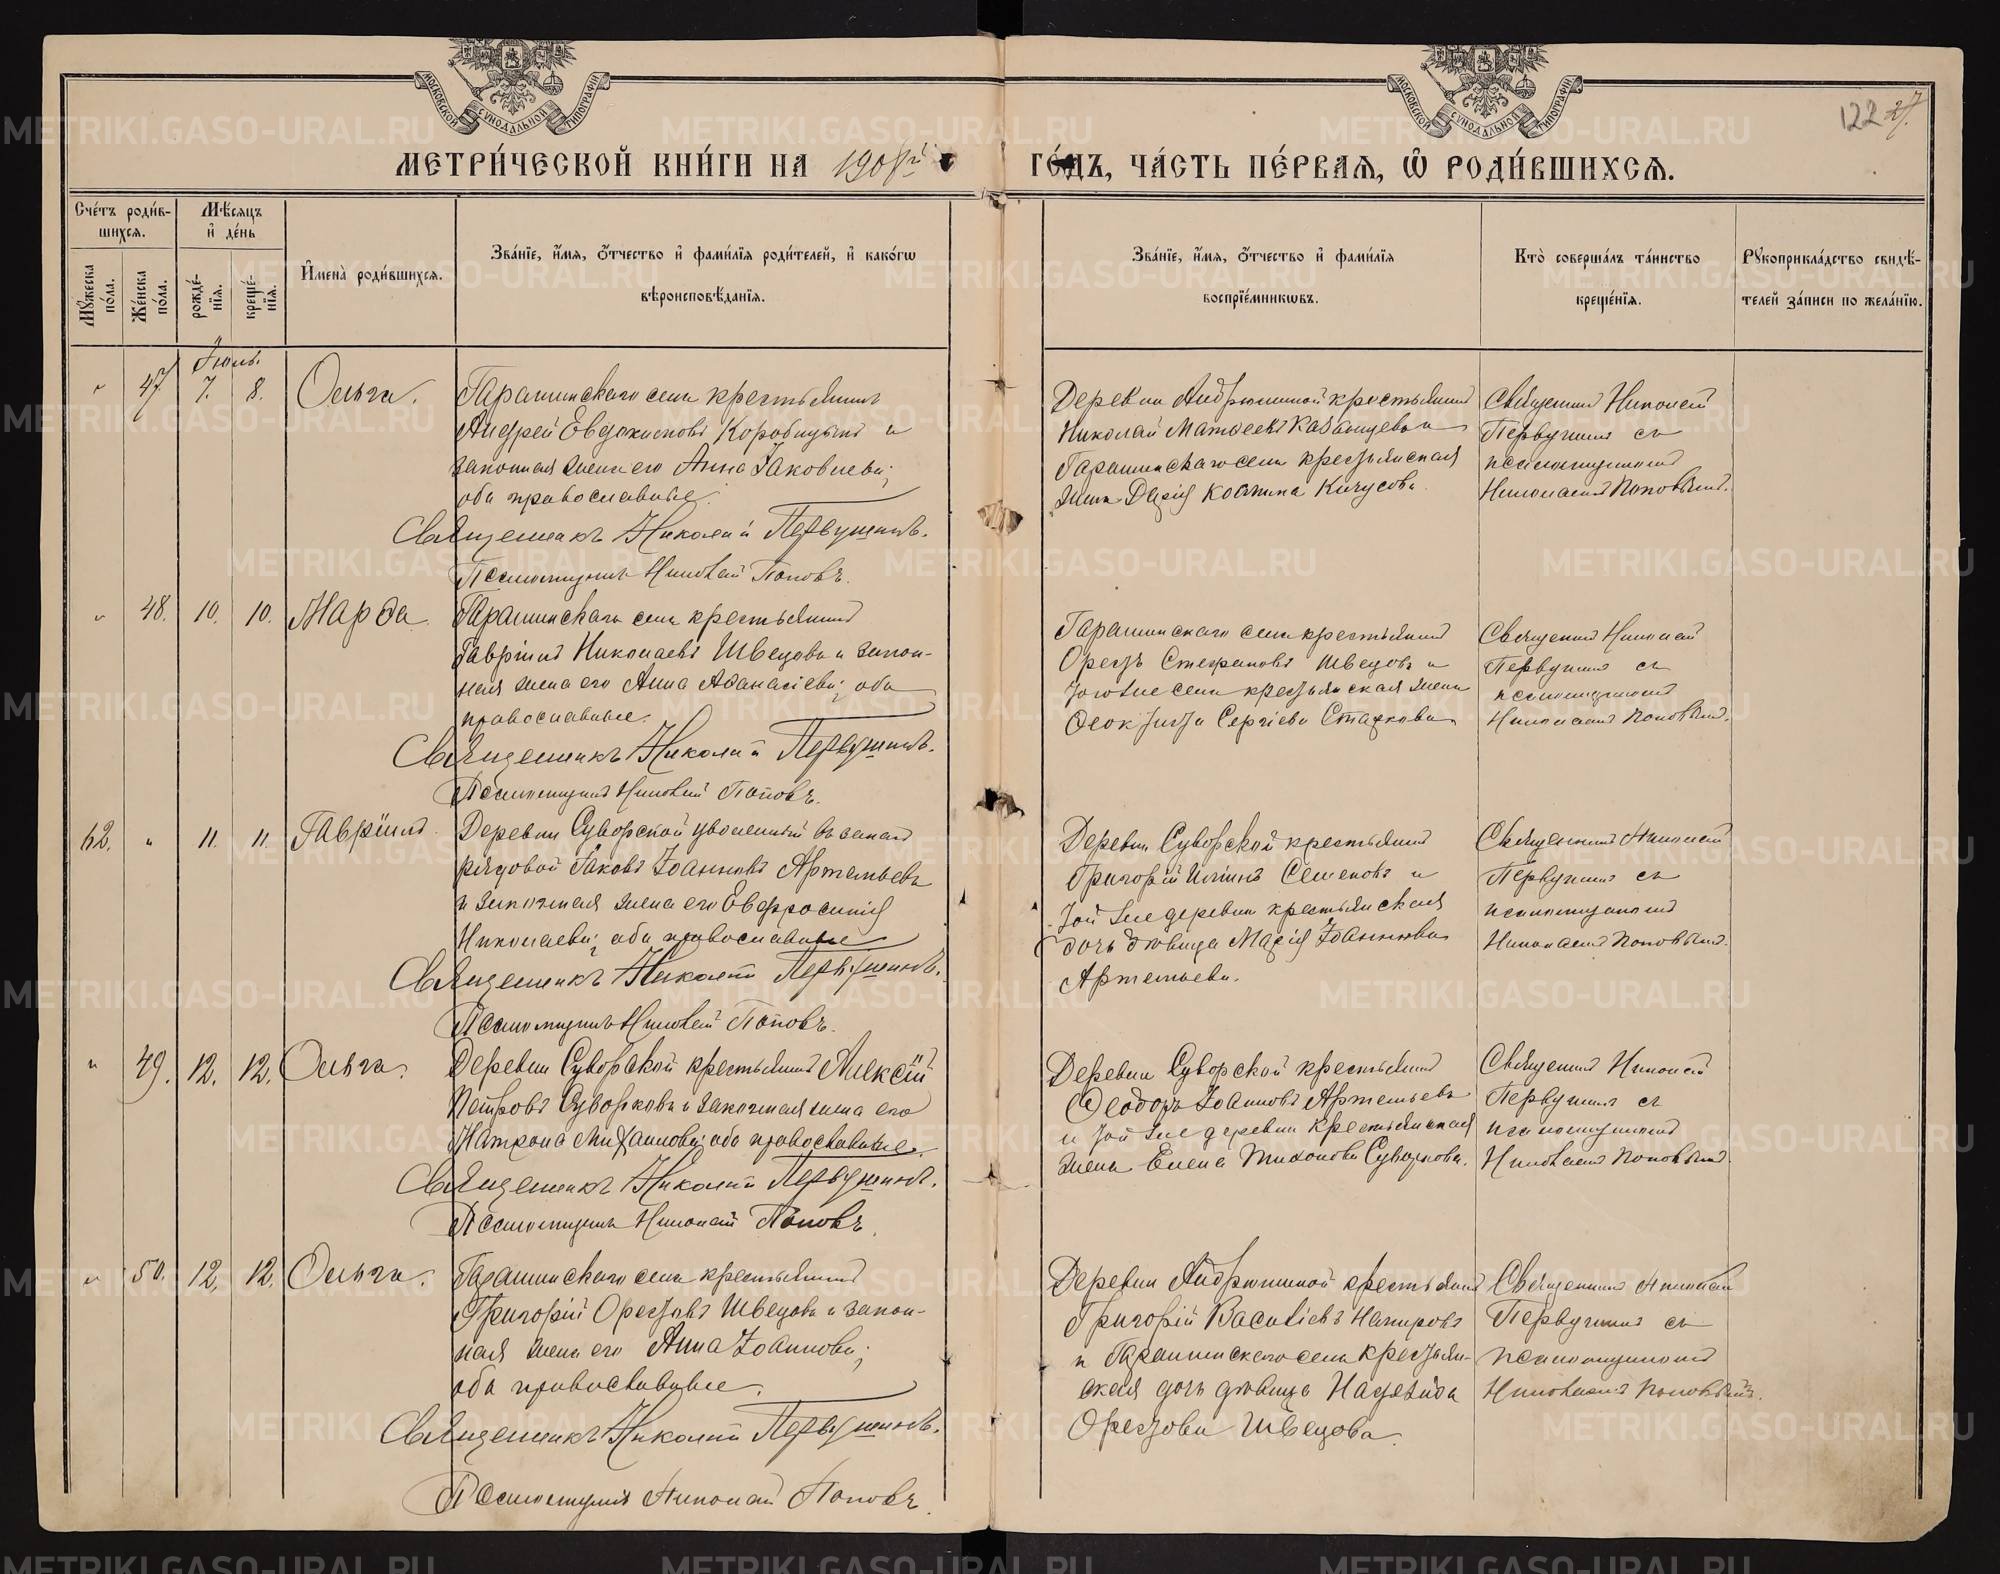 МОСКОВСКОЙ СѴНОДАЛЬНОЙ ТИПОГРАФІИ
МОСКОВСКОЙ СѴНОДАЛЬНОЙ ТИПОГРАФІИ
122 27.
МЕТРИ́ЧЕСКОЙ КНИ́ГИ НА 1908й
ГО́ДЪ, ЧА́СТЬ ПЕ́РВАѦ, Ѽ РОДИ́ВШИХСѦ.
Сче́тъ роди́в-
шихсѧ.
Мꙋ́жеска по́ла.
Же́нска по́ла.
Мѣ́сѧцъ
и҆ де́нь
рожде́-
нїѧ.
креще́-
нїѧ.
И҆мена̀ роди́вшихсѧ.
Зва́нїе, и҆́мѧ, ѻ҆́тчество и҆ фами́лїѧ роди́телей, и҆ како́гѡ
вѣроисповѣ́данїѧ.
Зва́нїе, и҆́мѧ, ѻ҆́тчество и҆ фами́лїѧ
воспрїе́мникѡвъ.
Кто̀ соверша́лъ та́инство
креще́нїѧ.
Рꙋкоприкла́дство свидѣ́-
телей за́писи по жела́нїю.
Іюль.
" 47 7. 8. Ольга.
Гарашинскаго села крестьянинъ
Андрей Евдокимовъ Коробицынъ и
законная жена его Анна Іаковлева;
оба православные.
Священникъ Николай Первушинъ.
Псаломщикъ Николай Поповъ.
Деревни Андрюшиной крестьянинъ
Николай Матвеевъ Казанцевъ и
Гарашинскаго села крестьянская
жена Дарія Кичусова.
Священникъ Николай
Первушинъ съ
псаломщикомъ
Николаемъ Поповымъ.
" 48. 10. 10. Марѳа.
Гарашинскаго села крестьянинъ
Гавріилъ Николаевъ Швецовъ и закон-
ная жена его Анна Аѳанасіева; оба
православные.
Священникъ Николай Первушинъ.
Псаломщикъ Николай Поповъ.
Гарашинскаго села крестьянинъ
Орестъ Стефановъ Швецовъ и
того же села крестьянская жена
Ѳеоктиста Сергіева Стахѣева.
Священникъ Николай
Первушинъ съ
псаломщикомъ
Николаемъ Поповымъ.
62. " 11. 11. Гавріилъ.
Деревни Суворской уволенный въ запас
рядовой Іаковъ Іоанновъ Артемьевъ
и законная жена его Евфросинія
Николаева; оба православные
Священникъ Николай Первушинъ.
Псаломщикъ Николай Поповъ.
Деревни Суворской крестьянинъ
Григорій Семеновъ и
той же деревни крестьянская
дочь дѣвица Марія Іоаннова
Артемьева.
Священникъ Николай
Первушинъ съ
псаломщикомъ
Николаемъ Поповымъ.
" 49. 12. 12. Ольга.
Деревни Суворской крестьянинъ Алексій
Петровъ Суворковъ и законная жена его
Матрона Михаилова; оба православные.
Священникъ Николай Первушинъ.
Псаломщикъ Николай Поповъ.
Деревни Суворской крестьянинъ
Ѳеодоръ Іоанновъ Артемьевъ
и той же деревни крестьянская
жена Елена Тихонова Суворкова.
Священникъ Николай
Первушинъ съ
псаломщикомъ
Николаемъ Поповымъ.
" 50. 12. 12. Ольга.
Гарашинскаго села крестьянинъ
Григорій Орестовъ Швецовъ и закон-
ная жена его Анна Іоаннова;
оба православные.
Священникъ Николай Первушинъ.
Псаломщикъ Николай Поповъ.
Деревни Андрюшиной крестьянинъ
Григорій Василіевъ
и Гарашинскаго села крестьян-
ская дочь дѣвица Надежда
Орестова Швецова.
Священникъ Николай
Первушинъ съ
псаломщикомъ
Николаемъ Поповымъ.
METRIKI.GASO-URAL.RU